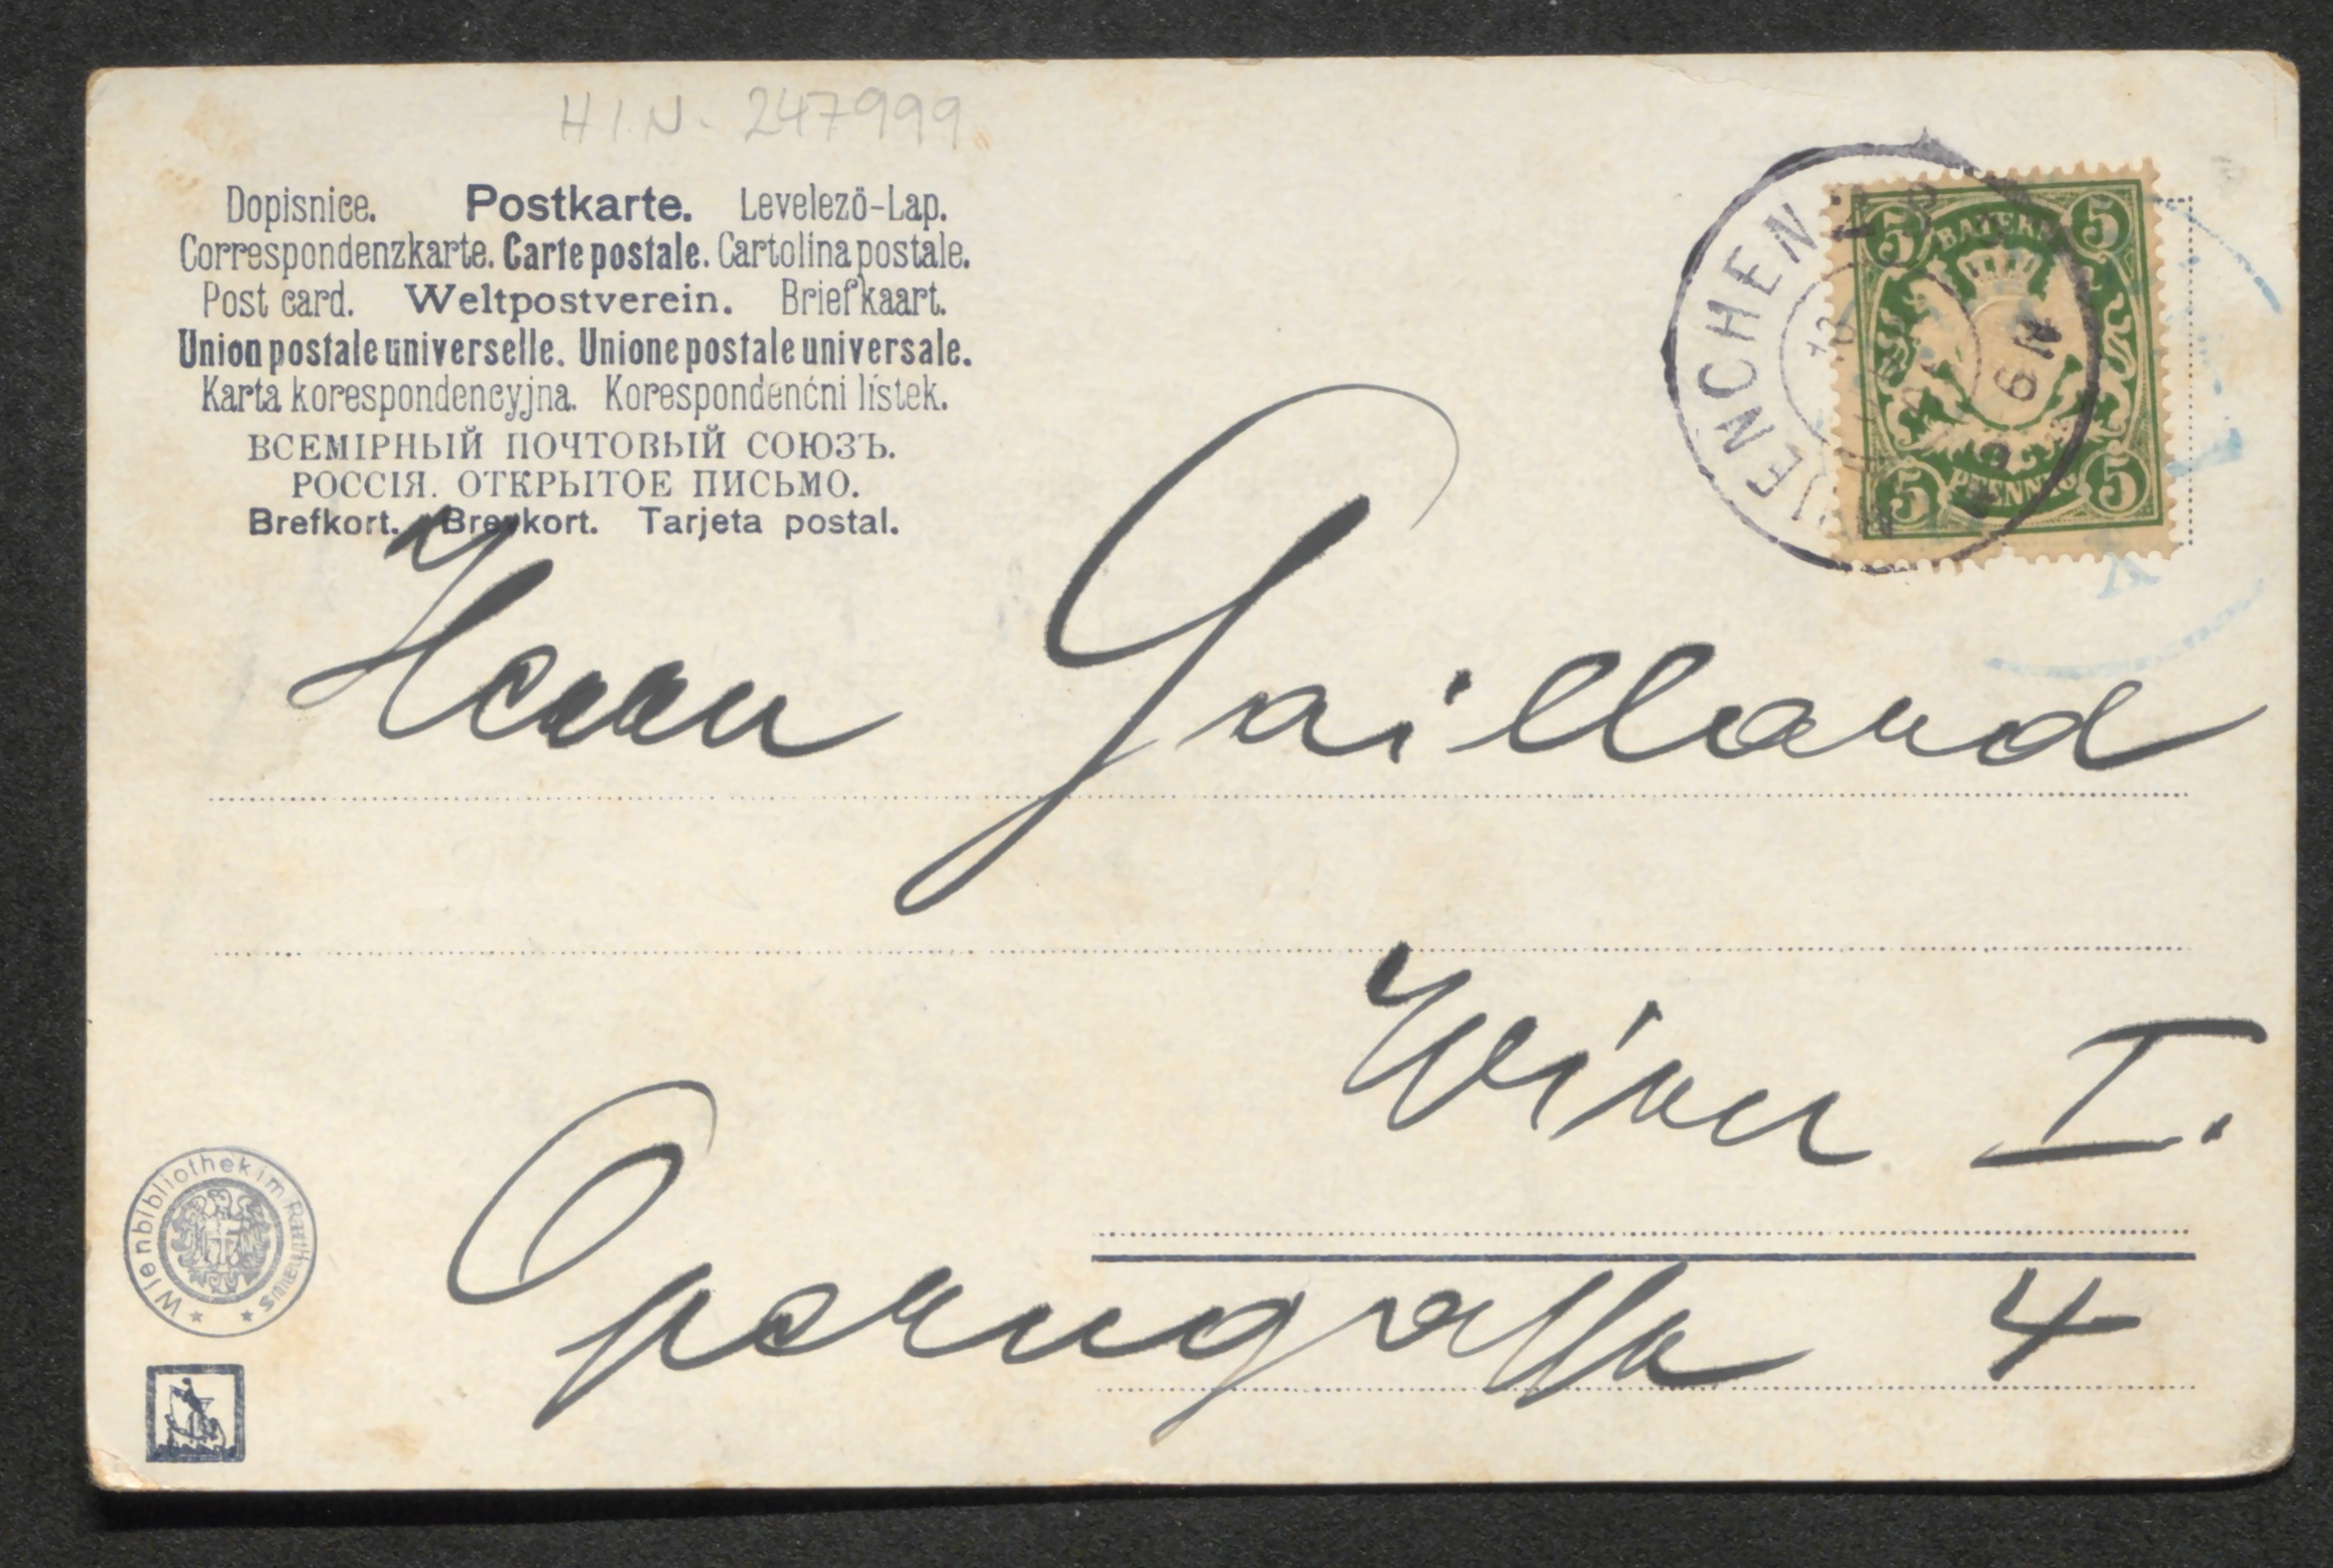 H.I.N. 247999
Dopisnice. Postkarte. Levelező-Lap.
Correspondenzkarte. Carte postale. Cartolina postale.
Post card. Weltpostverein. Briefkaart.
Union postale universelle. Unione postale universale.
Karta korespondencyjna. Korespondenćni lístek.
ВСЕМІРНЫЙ ПОЧТОВЫЙ СОЮЗЪ.
РОССІЯ. ОТКРЫТОЕ ПИСЬМО.
Brefkort. Brevkort. Tarjeta postal.
MUENCHEN
5 BAYERN 5
5 PFENNIG 5
Herrn Gaillard
Wien I.
Operngasse 4
Wienbibliothek im Rathaus